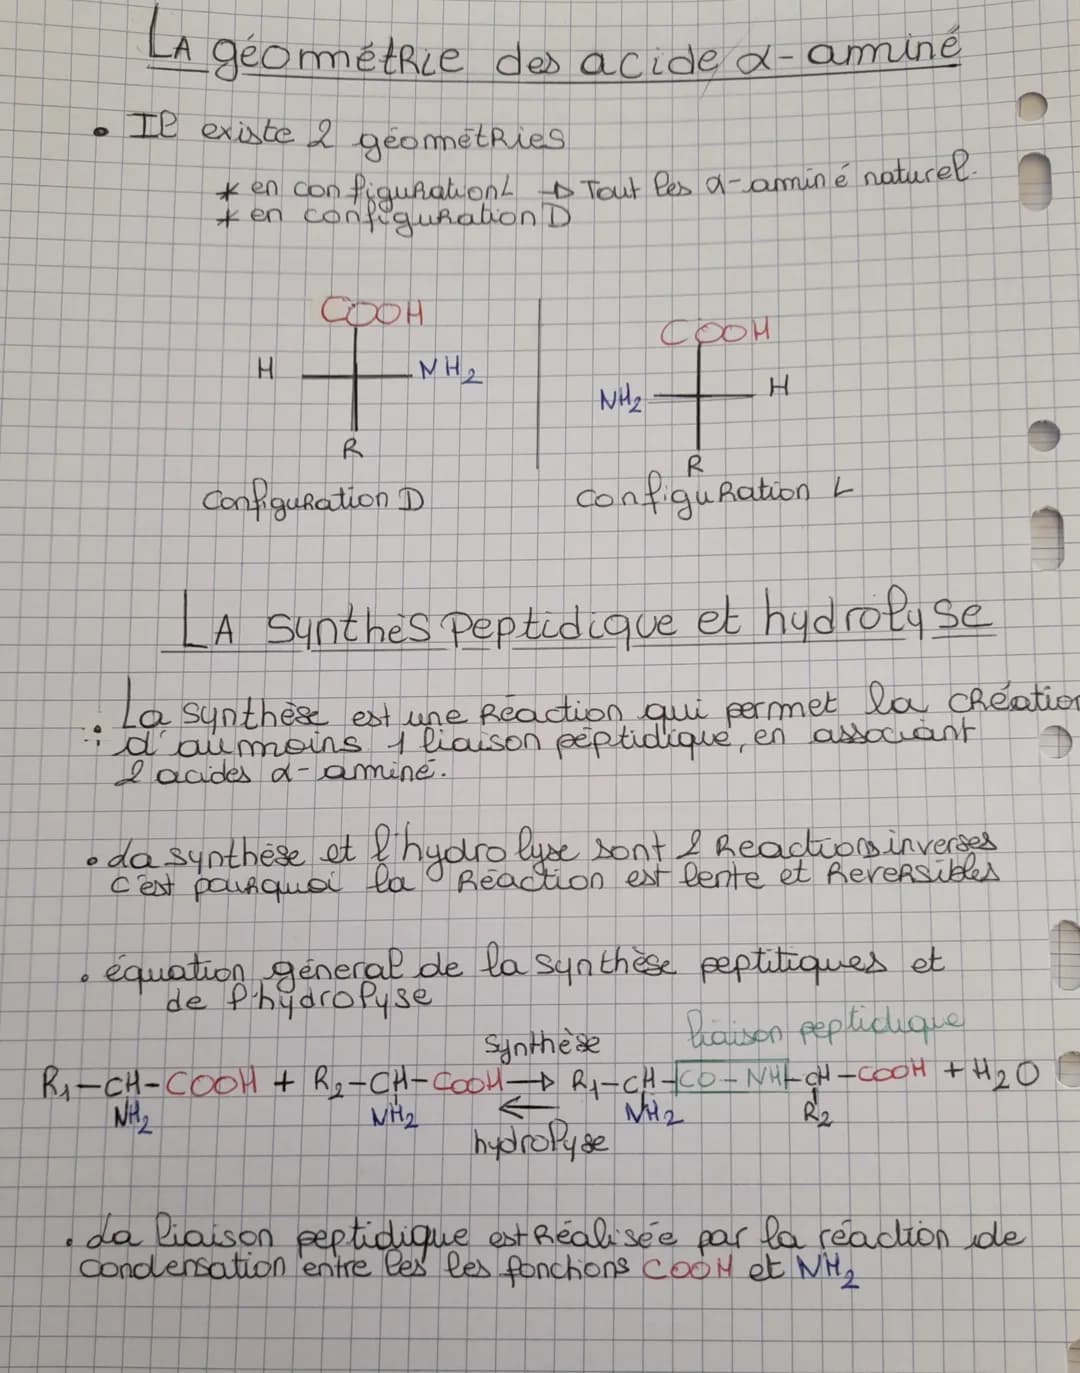 LA géométRie des acide α-aminé
• Il existe 2 géométRies
* en configuRation L → Tout les α-aminé naturel.
* en configuRation D
COOH
H NH2
R
Configuration D
COOH
NH2 H
R
configuRation L
LA synthès peptidique et hydrolyse
: La synthèse est une Réaction qui permet la cRéation
d'au moins 1 liaison peptidique, en associant
2 acides α-aminé.
• La synthèse et l'hydrolyse sont 2 Reactions inverses
c'est pouRquoi la Réaction est lente et ReveRsibles
• équation géneral de la synthèse peptitiques et
de l'hydrolyse
Synthèse liaison peptidique
R1-CH-COOH + R2-CH-COOH → R1-CH-CO-NH-CH-COOH + H2O
NH2 NH2 ← NH2 R2
hydrolyse
• La liaison peptidique est Réalisée par la réaction de
condensation entre les les fonctions COOH et NH2